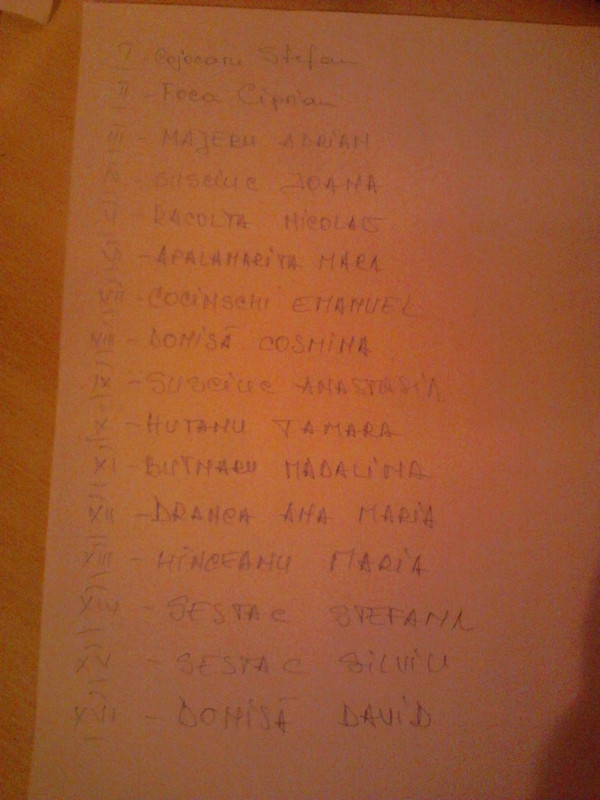 I - Cojocaru Stefan
II - Foca Ciprian
III - MAJERU ADRIAN
IV - SUSCIUC IOANA
V - RACOLTA NICOLAE
VI - APALAMARITA MARA
VII - COCINSCHI EMANUEL
VIII - DOMISĂ COSMINA
IX - SUSCIUC ANASTASIA
X - HUTANU TAMARA
XI - BUTNARU MADALINA
XII - DRANCA ANA MARIA
XIII - HINCEANU MARIA
XIV - SESTAC STEFANA
XV - SESTAC SILVIU
XVI - DOMISĂ DAVID